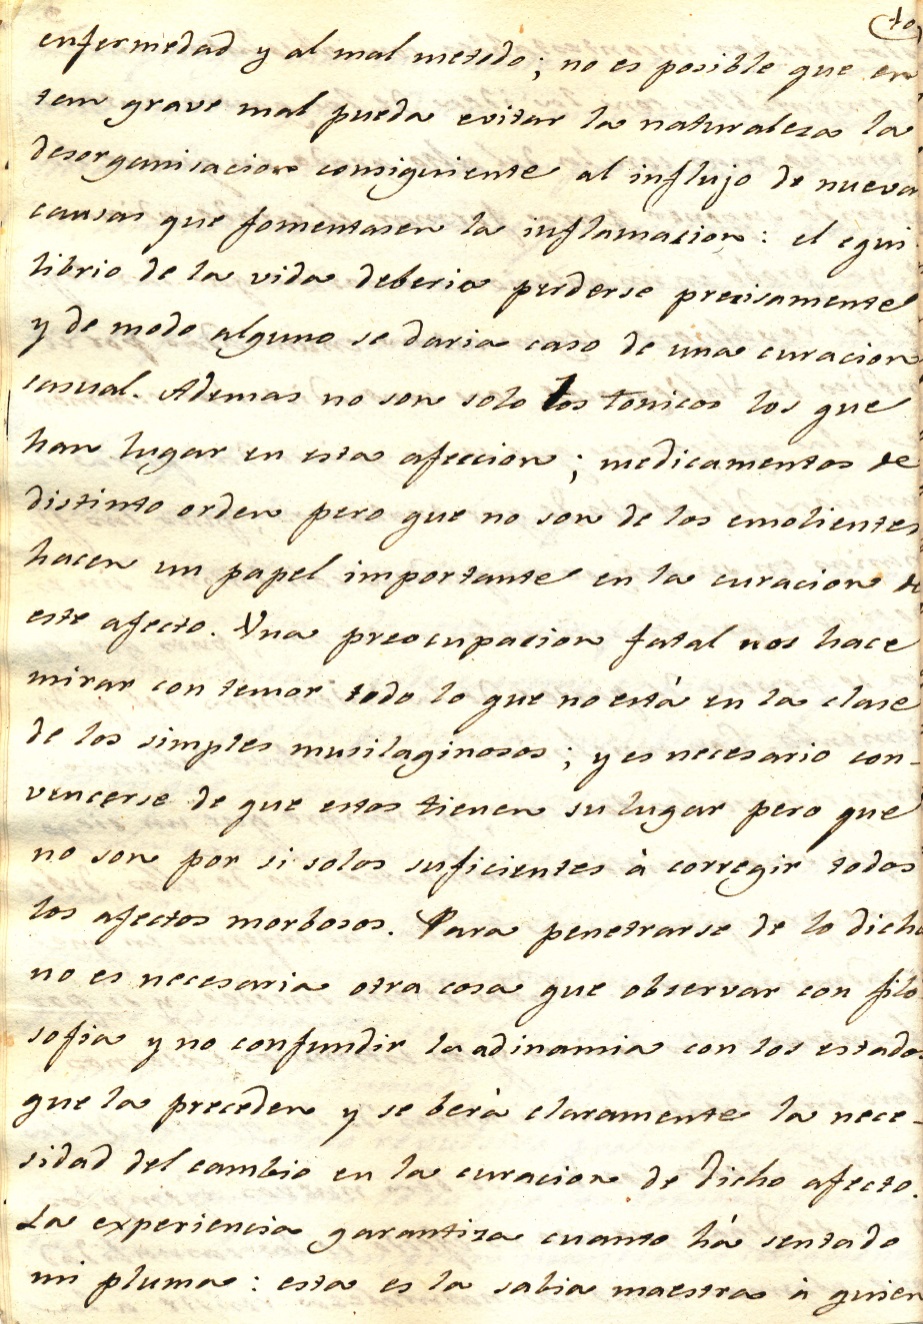 10
enfermedad y al mal metodo; no es posible que en
tan grave mal pueda evitar la naturaleza la
desorganisacion consiguiente al influjo de nueva
causas que fomentasen la inflamacion: el equi
librio de la vida deberia perderse precisamente
y de modo alguno se daria caso de una curacion
casual. Ademas no son solo los tonicos los que
han lugar en esta afeccion; medicamentos de
distinto orden pero que no son de los emolientes
hacen un papel importante en la curacion de
este afecto. Una preocupacion fatal nos hace
mirar con temor todo lo que no está en la clase
de los simples musilaginosos; y es necesario con-
vencerse de que estos tienen su lugar pero que
no son por si solos suficientes à corregir todos
los afectos morbosos. Para penetrarse de lo dicho
no es necesaria otra cosa que observar con filo
sofia y no confundir la adinamia con los estados
que la preceden y se berà claramente la nece-
sidad del cambio en la curacion de dicho afecto.
La experiencia garantiza cuanto há sentado
mi pluma: esta es la sabia maestra à quien